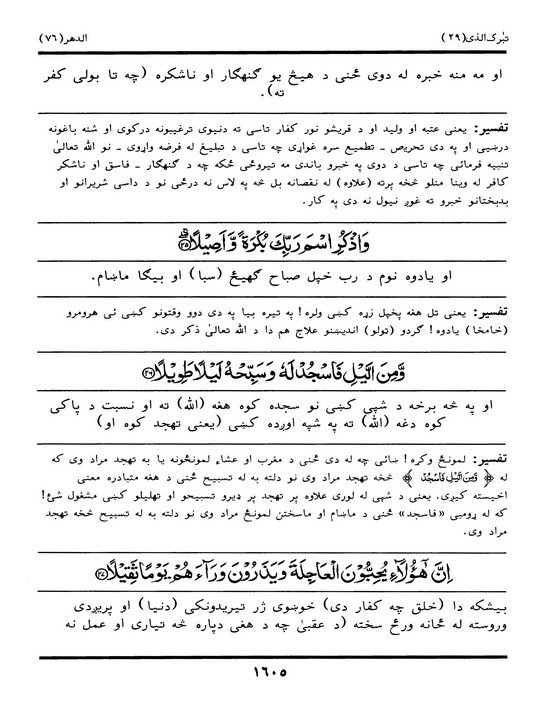 تبٰرك الذی(٢٩)
الدهر(٧٦)
او مه منه خبره له دوی ځنی د هيڅ يو گنهگار او ناشکره (چه تا بولی کفر
ته).
تفسير: يعنی عتبه او وليد او د قريشو نور کفار تاسی ته دنيوی ترغيبونه درکوی او شنه باغونه
درښيی او په دی تحريص ـ تطميع سره غواړی چه تاسی د تبليغ له فرضه واړوی ـ نو الله تعالیٰ
تنبيه فرمائی چه تاسی د دوی په خبرو باندی مه تيروځی ځکه چه د گنهگار ـ فاسق او ناشکر
کافر له وينا منلو څخه پرته (علاوه) له نقصانه بل څه په لاس نه درځی نو د داسی شريرانو او
بدبختانو خبرو ته غوږ نيول نه دی په کار.
وَاذْكُرِ اسْمَ رَبِّكَ بُكْرَةً وَّاَصِيْلًا ۝٢٥
او يادوه نوم د رب خپل صباح گهيځ (سبا) او بيگا ماښام.
تفسير: يعنی تل هغه پخپل زړه کښی ولره! په تيره بيا په دی دوو وقتونو کښی ئی هرومرو
(خامخا) يادوه! گردو (تولو) انديښنو علاج هم دا د الله تعالیٰ ذکر دی.
وَمِنَ الَّيْلِ فَاسْجُدْ لَهٗ وَسَبِّحْهُ لَيْلًا طَوِيْلًا ۝٢٦
او په څه برخه د شپی کښی نو سجده کوه هغه (الله) ته او نسبت د پاکی
کوه دغه (الله) ته په شپه اوږده کښی (يعنی تهجد کوه او)
تفسير: لمونځ وکړه! ښائی چه له دی ځنی د مغرب او عشاء لمونځونه يا به تهجد مراد وی که
له ﴿ وَمِنَ الَّيْلِ فَاسْجُدْ ﴾ څخه تهجد مراد وی نو دلته به له تسبيح ځنی د هغه متبادره معنی
اخيسته کيږی. يعنی د شپی له لوری علاوه پر تهجد پر ډيرو تسبيحو او تهليلو کښی مشغول شئ!
که له ړومبی «فاسجد» ځنی د ماښام او ماسختن لمونځ مراد وی نو دلته به له تسبيح څخه تهجد
مراد وی.
اِنَّ هٰٓؤُلَآءِ يُحِبُّوْنَ الْعَاجِلَةَ وَيَذَرُوْنَ وَرَآءَهُمْ يَوْمًا ثَقِيْلًا ۝٢٧
بيشکه دا (خلق چه کفار دی) خوښوی ژر تيريدونکی (دنيا) او پريږدی
وروسته له ځانه ورځ سخته (د عقبیٰ چه د هغی دپاره څه تياری او عمل نه
١٦٠٥